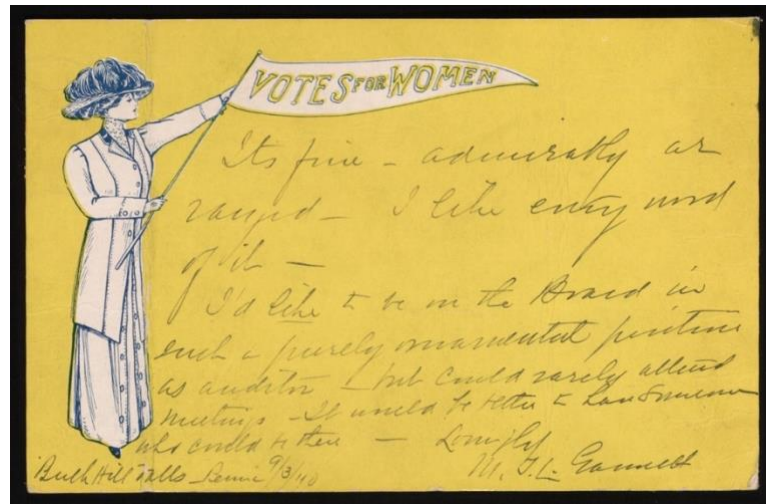 VOTES FOR WOMEN
Its fine - admirably ar
ranged - I like every word
of it -
I'd like to be on the Board in
such a purely ornamental position
as auditor - but could rarely attend
meetings - It would be better to have someone
who could be there - Lovingly
M. T. L. Gannett
Hill Falls Penna 9/3/10